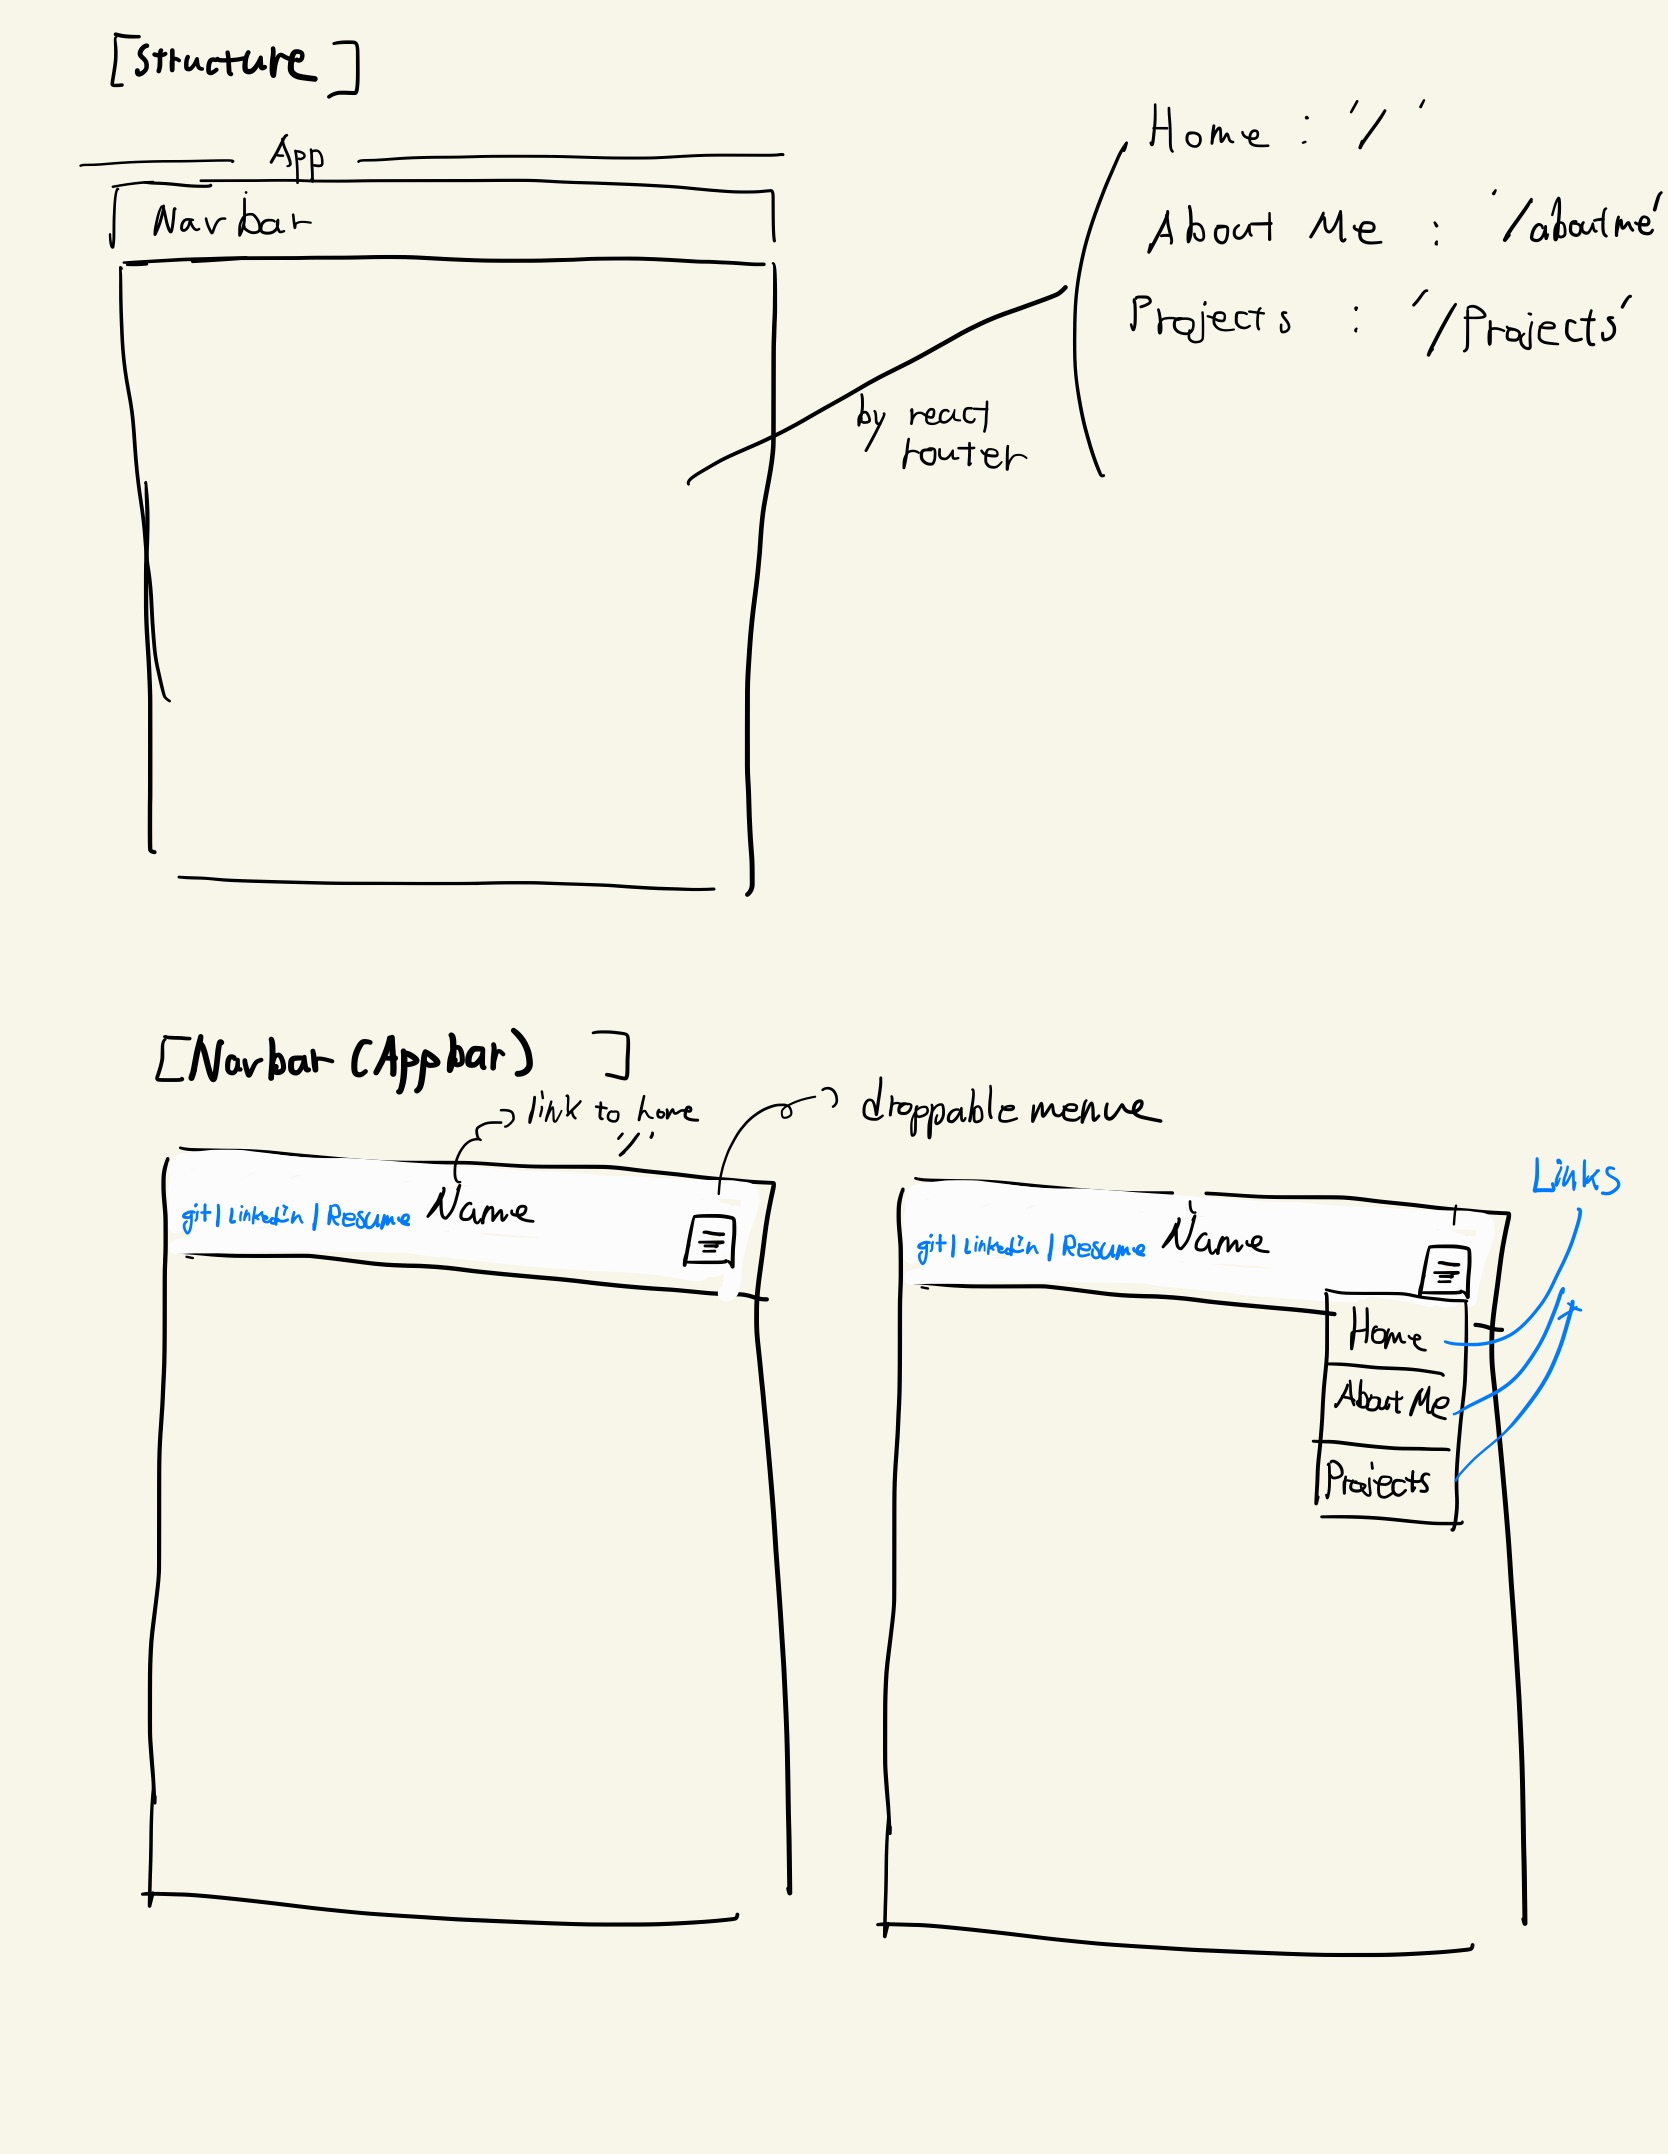 [Structure]
App
Navbar
Home : '/'
About Me : '/aboutme'
Projects : '/Projects'
by react
router
[Navbar (Appbar) ]
link to home
'/'
droppable menue
git | Linkedin | Resume Name
Links
git | Linkedin | Resume Name
Home
About Me
Projects